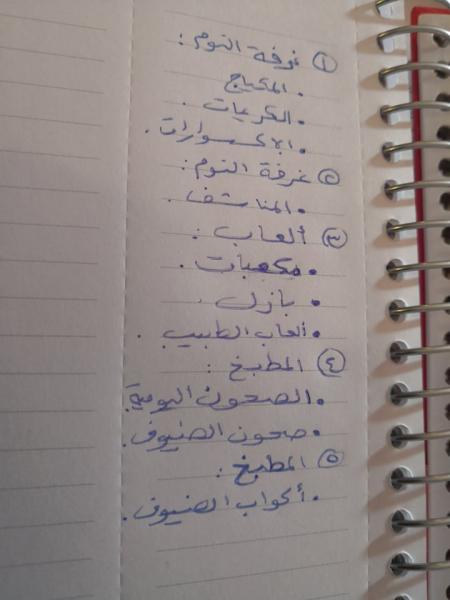 ① غرفة النوم :
• المكياج
• الكريمات .
• الاكسسوارات .
② غرفة النوم :
• المناشف .
③ ألعاب :
• مكعبات .
• بازل .
• ألعاب الطبيب .
④ المطبخ :
• الصحون اليومية .
• صحون الضيوف .
⑤ المطبخ :
• أكواب الضيوف .